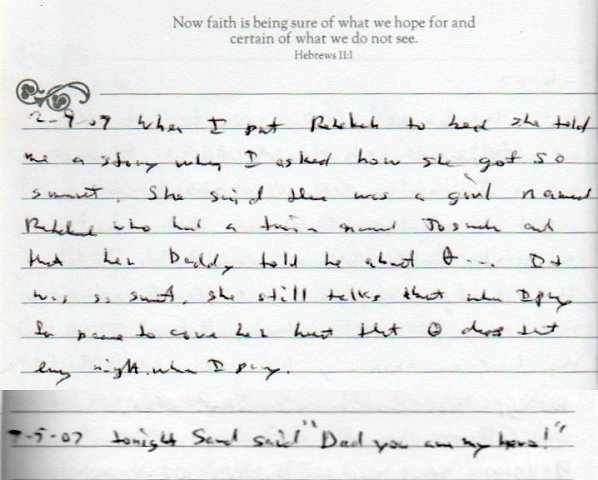 Now faith is being sure of what we hope for and
certain of what we do not see.
Hebrews 11:1
2-9-07 When I put Rebekah to bed she told
me a story when I asked how she got so
smart. She said there was a girl named
Rebekah who had a twin named Joshua and
that her Daddy told he about ... It
was so sweet. She still talks that when I pray
for peace to cover her heart that does that
every night when I pray.
-5-07 tonight said "Dad you are my hero!"